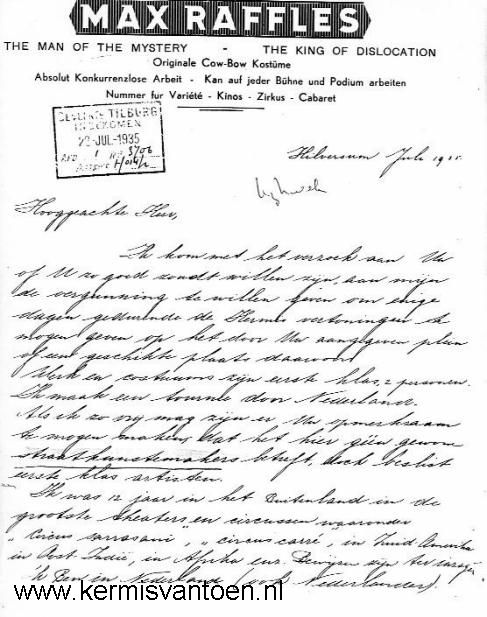 MAX RAFFLES
THE MAN OF THE MYSTERY - THE KING OF DISLOCATION
Originale Cow-Bow Kostüme
Absolut Konkurrenzlose Arbeit - Kan auf jeder Bühne und Podium arbeiten
Nummer fur Variété - Kinos - Zirkus - Cabaret
GEMEENTE TILBURG
INGEKOMEN
29-JUL-1935
AFD 1 No 3706
Hilversum Juli 19
Hooggeachte Heer,
Ik kom met het verzoek aan Uw
of U zo goed zoudt willen zijn, aan mijn
de vergunning te willen geven om enige
dagen gedurende de Kermis vertoningen te
mogen geven op het door Uw aangegeven plein
of een geschikte plaats daarvoor.
Werk en costuums zijn eerste klas, 2 personen.
Ik maak een tournee door Nederland.
Als ik zo vrij mag zijn er Uw opmerksaam
te mogen maken, dat het hier géen gewone
straatkunstemakers betreft, doch beslist
eerste klas artisten.
Ik was 12 jaar in het Buitenland in de
grootste theaters en circussen waaronder
„Circus Sarrasani", „circus carré", in Zuid Amerika
in Oost Indië, in Afrika enz. Bewijzen zijn ter inzage
'k Ben en Nederland (ook Nederlander).
www.kermisvantoen.nl